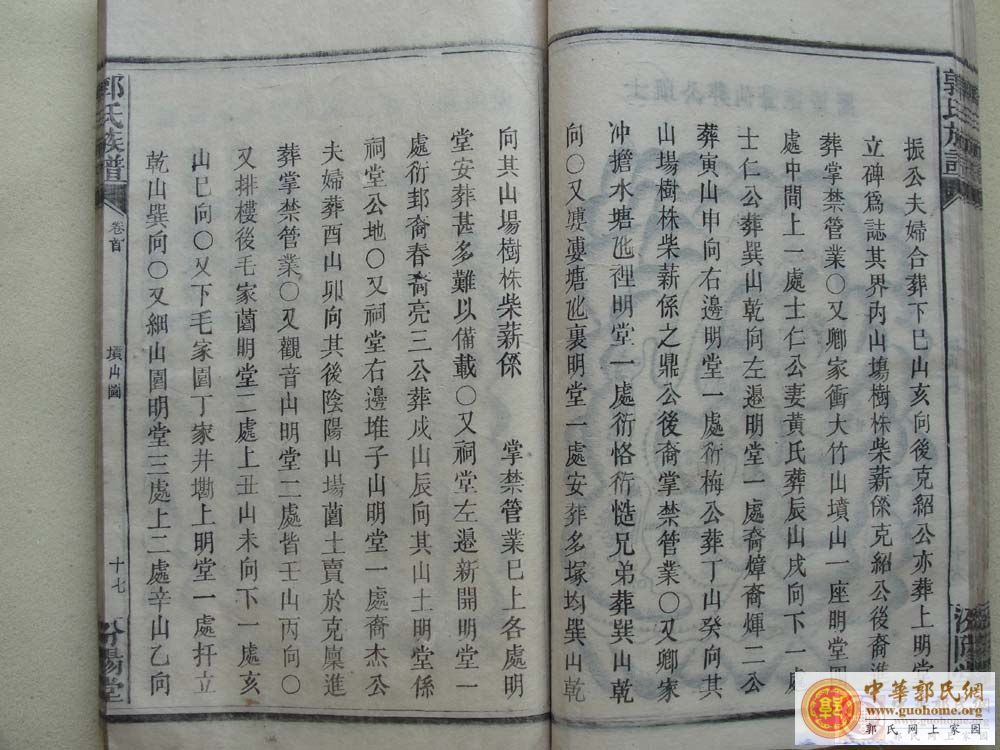 郭氏族譜
振公夫婦合葬下巳山亥向後克紹公亦葬上明堂
立碑爲誌其界內山塲樹株柴薪係克紹公後裔進
葬掌禁管業〇又鄉家衝大竹山墳山一座明堂
處中間上一處士仁公妻黃氏葬辰山戌向下一處
士仁公葬巽山乾向左邊明堂一處裔煒裔煇二公
葬寅山申向右邊明堂一處衍梅公葬丁山癸向其
山塲樹株柴薪係之鼎公後裔掌禁管業〇又鄉家
冲擔水塘㐌裡明堂一處衍恪衍慥兄弟葬巽山乾
向〇又塘㐌裏明堂一處安葬多塚均巽山乾
向其山塲樹株柴薪係 掌禁管業巳上各處明
堂安葬甚多難以備載〇又祠堂左邊新開明堂一
處衍封裔春裔亮三公葬戌山辰向其山土明堂係
祠堂公地〇又祠堂右邊堆子山明堂一處裔杰公
夫婦葬酉山卯向其後陰陽山塲薗土賣於克廩進
葬掌禁管業〇又觀音山明堂二處皆壬山丙向〇
又排樓後毛家薗明堂二處上丑山未向下一處亥
山巳向〇又下毛家園丁家井墈上明堂一處扞立
乾山巽向〇又細山園明堂三處上二處辛山乙向
郭氏族譜
卷首
墳山圖
十七
汾陽堂
中華郭氏網
www.guohome.org
郭氏网上家园